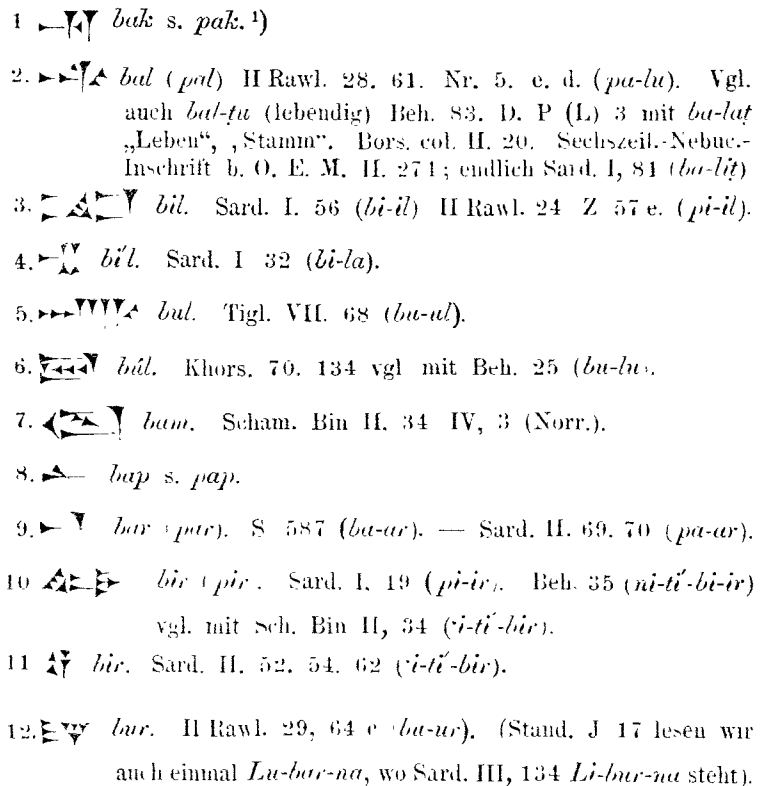 1 bak s. pak. ¹)
2. bal (pal) II Rawl. 28. 61. Nr. 5. e. d. (pa-lu). Vgl.
auch bal-ṭu (lebendig) Beh. 83. D. P (L) 3 mit ba-laṭ
„Leben“, „Stamm“. Bors. col. II. 20. Sechszeil.-Nebuc.-
Inschrift b. O. E. M. II. 271; endlich Sard. I, 81 (ba-liṭ)
3. bil. Sard. I. 56 (bi-il) II Rawl. 24 Z 57 e. (pi-il).
4. bí'l. Sard. I 32 (bi-la).
5. bul. Tigl. VII. 68 (bu-ul).
6. búl. Khors. 70. 134 vgl mit Beh. 25 (bu-lu).
7. bam. Scham. Bin II. 34 IV, 3 (Norr.).
8. bap s. pap.
9. bar (par). S 587 (ba-ar). — Sard. II. 69. 70 (pa-ar).
10 bir (pir. Sard. I, 19 (pi-ir). Beh. 35 (ni-ti'-bi-ir)
vgl. mit Sch. Bin II, 34 ('i-ti'-bir).
11 bir. Sard. II. 52. 54. 62 ('i-ti'-bir).
12. bur. II Rawl. 29, 64 e (bu-ur). (Stand. J 17 lesen wir
auch einmal Lu-bar-na, wo Sard. III, 134 Li-bur-na steht).